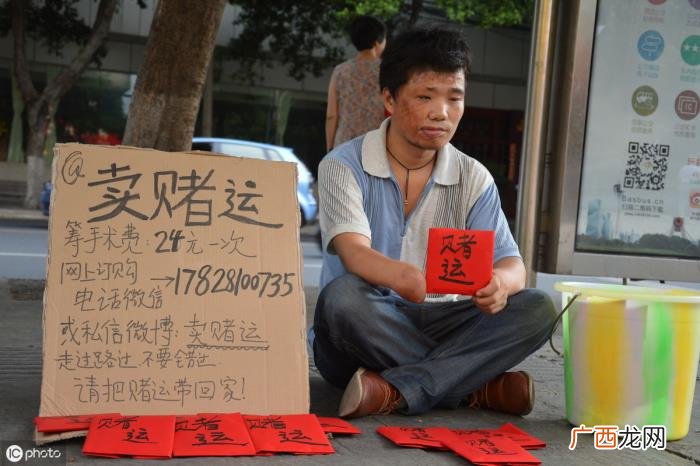 @卖赌运
筹手术费:24元一次
网上订购
→17828100735
电话微信
或私信微博:卖赌运
走过路过,不要错过
请把赌运带回家!
赌
运
赌运
赌运
赌运
赌运
iC
photo
广西龙网